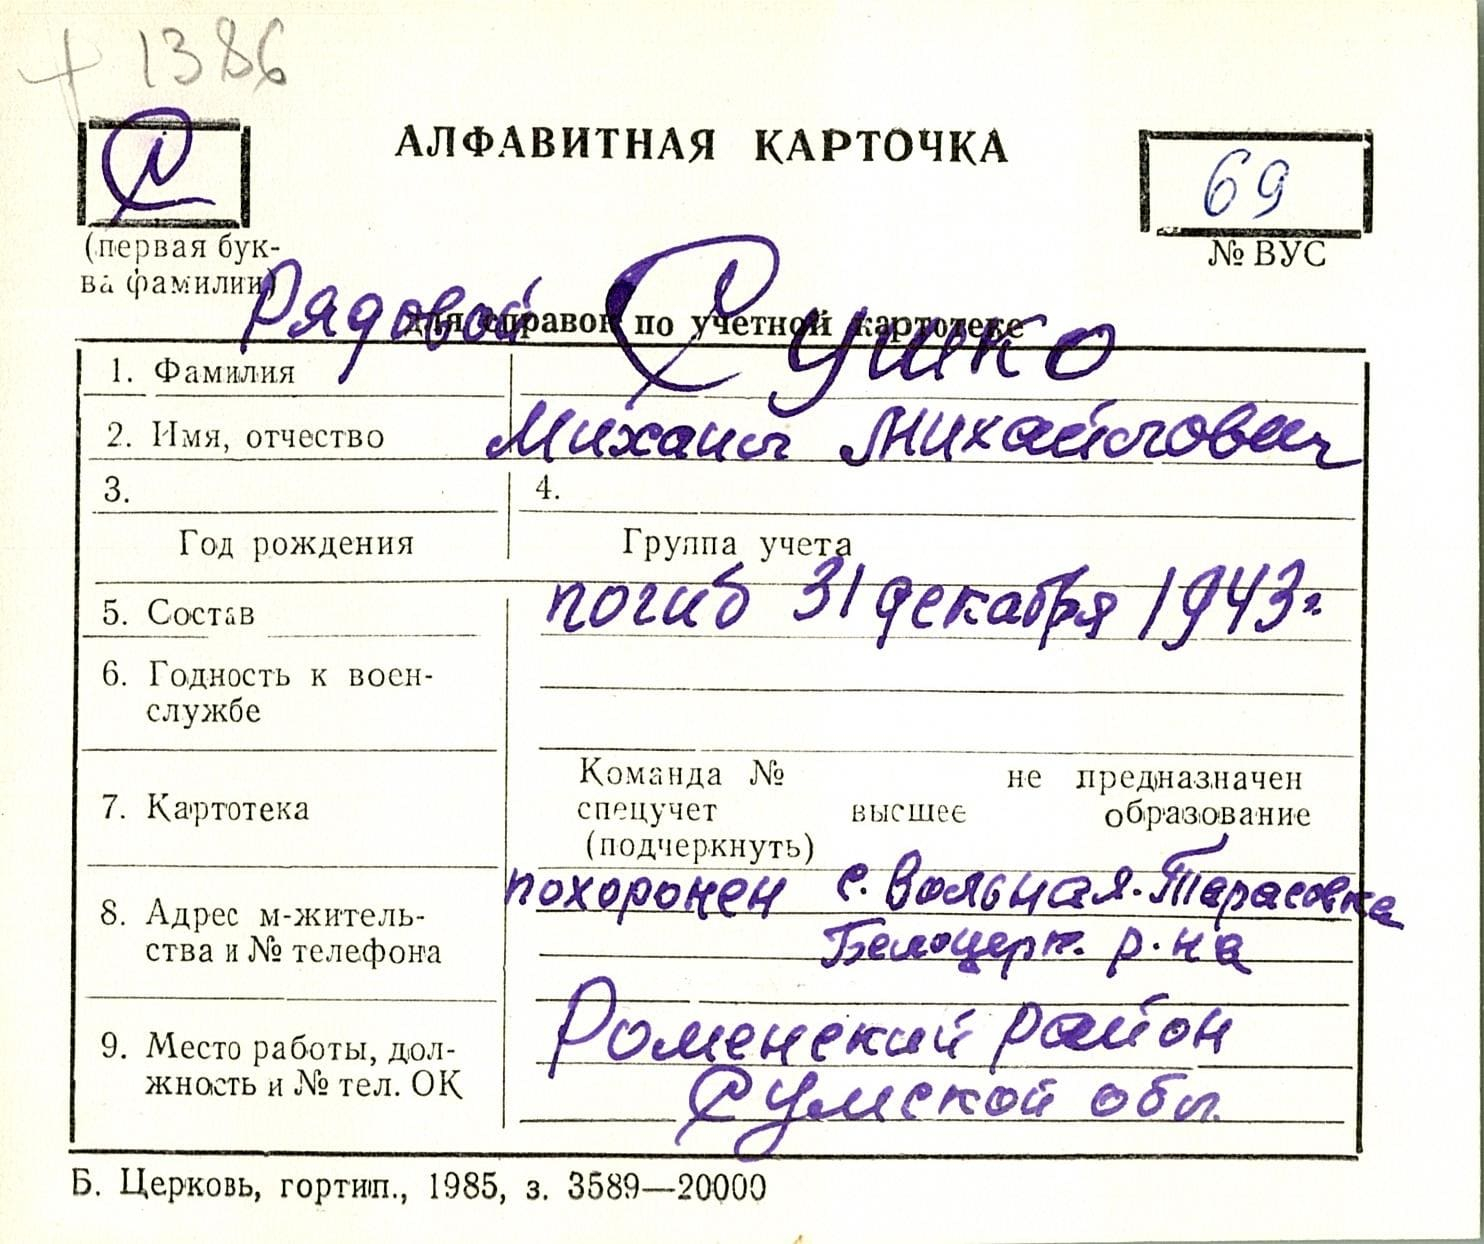 + 1386
С
АЛФАВИТНАЯ КАРТОЧКА
69
(первая бук-
ва фамилии)
№ ВУС
Рядовой Сушко
для справок по учетной картотеке
1. Фамилия
2. Имя, отчество Михаил Михайлович
3. 4.
Год рождения Группа учета
5. Состав погиб 31 декабря 1943 г.
6. Годность к воен-
службе
Команда № не предназначен
7. Картотека спецучет высшее образование
(подчеркнуть)
похоронен с. Вольная-Тарасовка
8. Адрес м-житель-
ства и № телефона Белоцерк. р-на
Роменский район
9. Место работы, дол-
жность и № тел. ОК Сумской обл.
Б. Церковь, гортип., 1985, з. 3589—20000